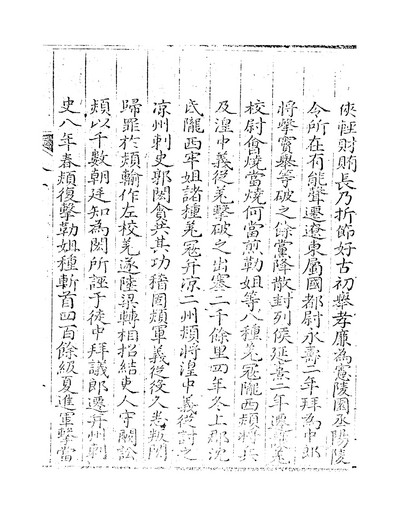 俠輕財賄長乃折節好古初舉孝廉為憲陵園丞陽陵
令所在有能聲遷遼東屬國都尉永壽二年拜為中郎
將擊竇舉等破之餘黨降散封列侯延熹二年遷護羌
校尉會燒當燒何當煎勒姐等八種羌寇隴西熲將兵
及湟中義從羌擊破之出塞二千餘里四年冬上郡沈
氐隴西牢姐諸種羌寇并涼二州熲將湟中義從討之
涼州刺史郭閎貪共其功稽固熲軍義從役久悉叛閎
歸罪於熲輸作左校羌遂陸梁轉相招結吏人守闕訟
熲以千數朝廷知為閎所誣于徒中拜議郎遷并州刺
史八年春熲復擊勒姐種斬首四百餘級夏進軍擊當